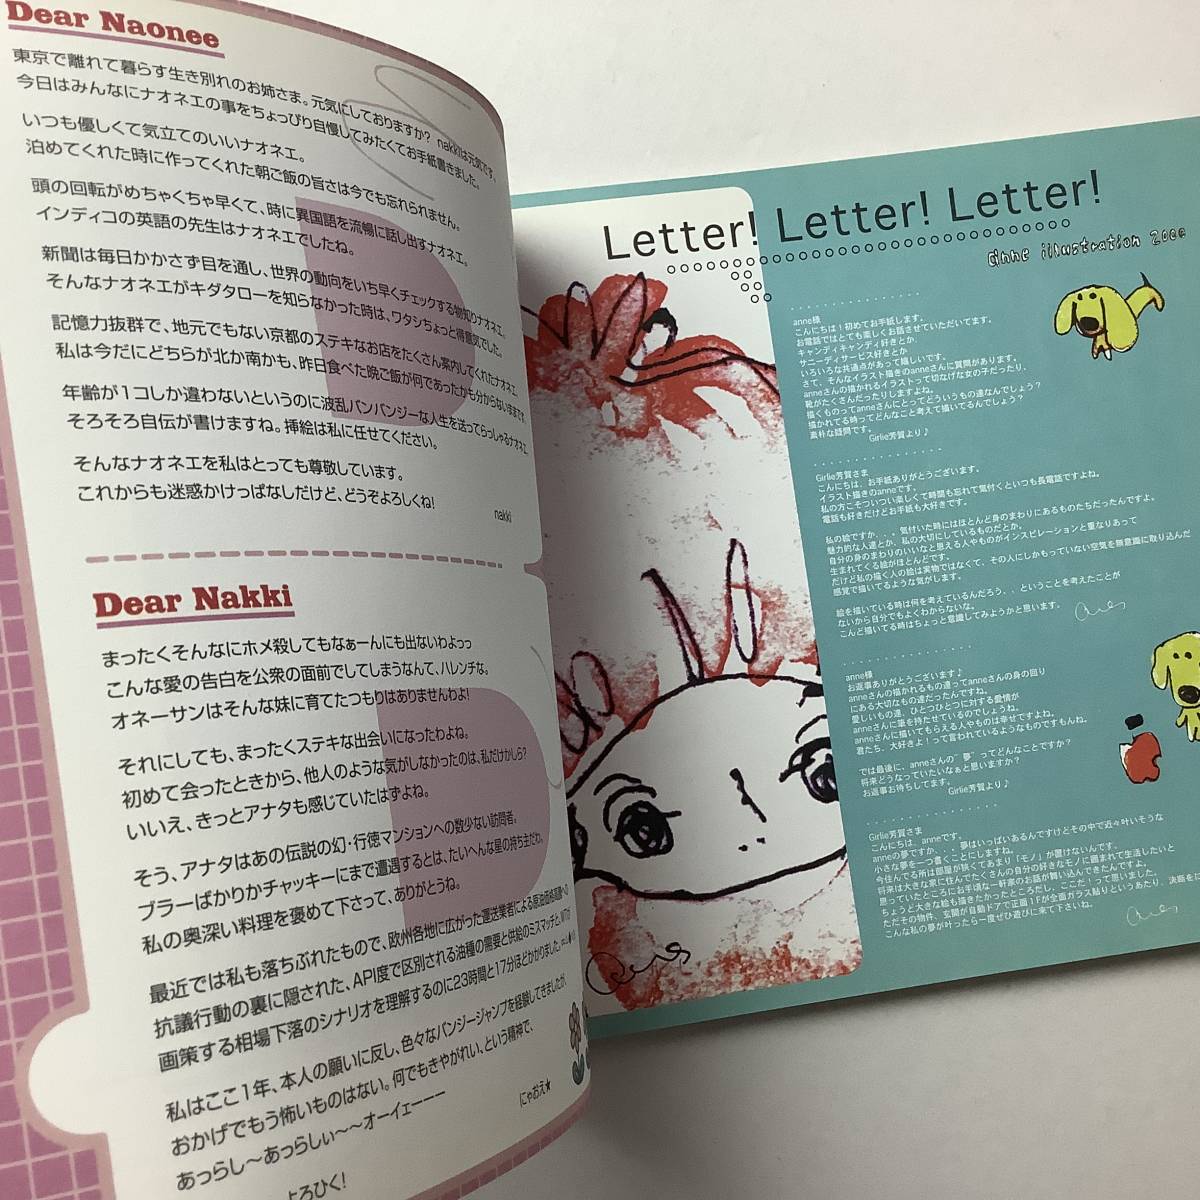 Dear Naonee
東京で離れて暮らす生き別れのお姉さま。元気にしておりますか? nakkiは元気です。
今日はみんなにナオネエの事をちょっぴり自慢してみたくてお手紙書きました。
いつも優しくて気立てのいいナオネエ。
泊めてくれた時に作ってくれた朝ご飯の旨さは今でも忘れられません。
頭の回転がめちゃくちゃ早くて、時に異国語を流暢に話し出すナオネエ。
インディコの英語の先生はナオネエでしたね。
新聞は毎日かかさず目を通し、世界の動向をいち早くチェックする物知りナオネエ。
そんなナオネエがキダタローを知らなかった時は、ワタシちょっと得意気でした。
記憶力抜群で、地元でもない京都のステキなお店をたくさん案内してくれたナオネエ。
私は今だにどちらが北か南かも、昨日食べた晩ご飯が何であったかも分からないままです。
年齢が1コしか違わないというのに波乱バンバンジーな人生を送ってらっしゃるナオネエ。
そろそろ自伝が書けますね。挿絵は私に任せてください。
そんなナオネエを私はとっても尊敬しています。
これからも迷惑かけっぱなしだけど、どうぞよろしくね!
nakki
Dear Nakki
まったくそんなにホメ殺してもなぁーんにも出ないわよっっ
こんな愛の告白を公衆の面前でしてしまうなんて、ハレンチな。
オネーサンはそんな妹に育てたつもりはありませんわよ!
それにしても、まったくステキな出会いになったわよね。
初めて会ったときから、他人のような気がしなかったのは、私だけかしら?
いいえ、きっとアナタも感じていたはずよね。
そう、アナタはあの伝説の幻・行徳マンションへの数少ない訪問者。
プラーばかりかチャッキーにまで遭遇するとは、たいへんな星の持ち主だわ。
私の奥深い料理を褒めて下さって、ありがとうね。
最近では私も落ちぶれたもので、欧州各地に広がった運送業者による原油価格高騰への
抗議行動の裏に隠された、API度で区別される油種の需要と供給のミスマッチと、
画策する相場下落のシナリオを理解するのに23時間と17分ほどかかりました。
私はここ1年、本人の願いに反し、色々なバンジージャンプを経験してきましたが、
おかげでもう怖いものはない。何でもきやがれい、という精神で、
あっらし〜あっらしぃ〜〜オーイェーーー
よろひく!
にゃおえ★
Letter! Letter! Letter!
anne illustration 2000
anne様
こんにちは!初めてお手紙します。
お電話ではとても楽しくお話させていただいてます。
キャンディキャンディ好きとか
サニーディサービス好きとか
いろいろな共通点があって嬉しいです。
さて、そんなイラスト描きのanneさんに質問があります。
anneさんの描かれるイラストって切なげな女の子だったり、
靴がたくさんだったりしますよね。
描くものってanneさんにとってどういうもの達なんでしょう?
描かれてる時ってどんなこと考えて描いてるんでしょう?
素朴な疑問です。
Girlie芳賀より♪
Girlie芳賀さま
こんにちは、お手紙ありがとうございます。
イラスト描きのanneです。
私の方こそついつい楽しくて時間も忘れて気付くといつも長電話ですよね。
電話も好きだけどお手紙も大好きです。
私の絵ですか、、、気付いた時にはほとんど身のまわりにあるものたちだったんですよ。
魅力的な人達とか、私の大切にしているものだとか。
自分の身のまわりのいいなと思える人やものがインスピレーションと重なりあって
生まれてくる絵がほとんどです。
だけど私の描く人の絵は実物ではなくて、その人にしかもっていない空気を無意識に取り込んだ
感覚で描いてるような気がします。
絵を描いている時は何を考えているんだろう、、ということを考えたことが
ないから自分でもよくわからないな。
こんど描いてる時はちょっと意識してみようかと思います。
anne様
お返事ありがとうございます♪
anneさんの描かれるもの達ってanneさんの身の回り
にある大切なもの達だったんですね。
愛しいもの達、ひとつひとつに対する愛情が
anneさんに筆を持たせているのでしょうね。
anneさんに描いてもらえる人やものは幸せですよね。
君たち、大好きよ!って言われているようなものですもんね。
では最後に、anneさんの"夢"ってどんなことですか?
将来どうなっていたいなぁと思いますか?
お返事お待ちしてます。
Girlie芳賀より♪
Girlie芳賀さま
こんにちは、anneです。
anneの夢ですか、、、夢はいっぱいあるんですけどその中で近々叶いそうな
小さな夢を一つ書くことにしますね。
今住んでる所は部屋が狭くてあまり「モノ」が置けないんです。
将来は大きな家に住んでたくさんの自分の好きなモノに囲まれて生活したいと
思っていたところにお手頃な一軒家のお話が舞い込んできたんですよ。
ちょうど大きな絵も描きたかったところだし、ここだ!って思いました。
ただその物件、玄関が自動ドアで正面1Fが全面ガラス貼りというあたり、決断をに
こんな私の夢が叶ったら一度ぜひ遊びに来て下さいね。